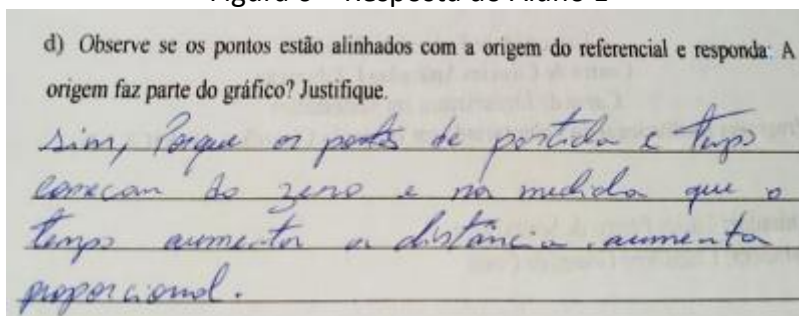 d) Observe se os pontos estão alinhados com a origem do referencial e responda: A
origem faz parte do gráfico? Justifique.
sim, Porque os pontos de partida e tempo
começam do zero e na medida que o
tempo aumenta a distância aumenta
proporcional.